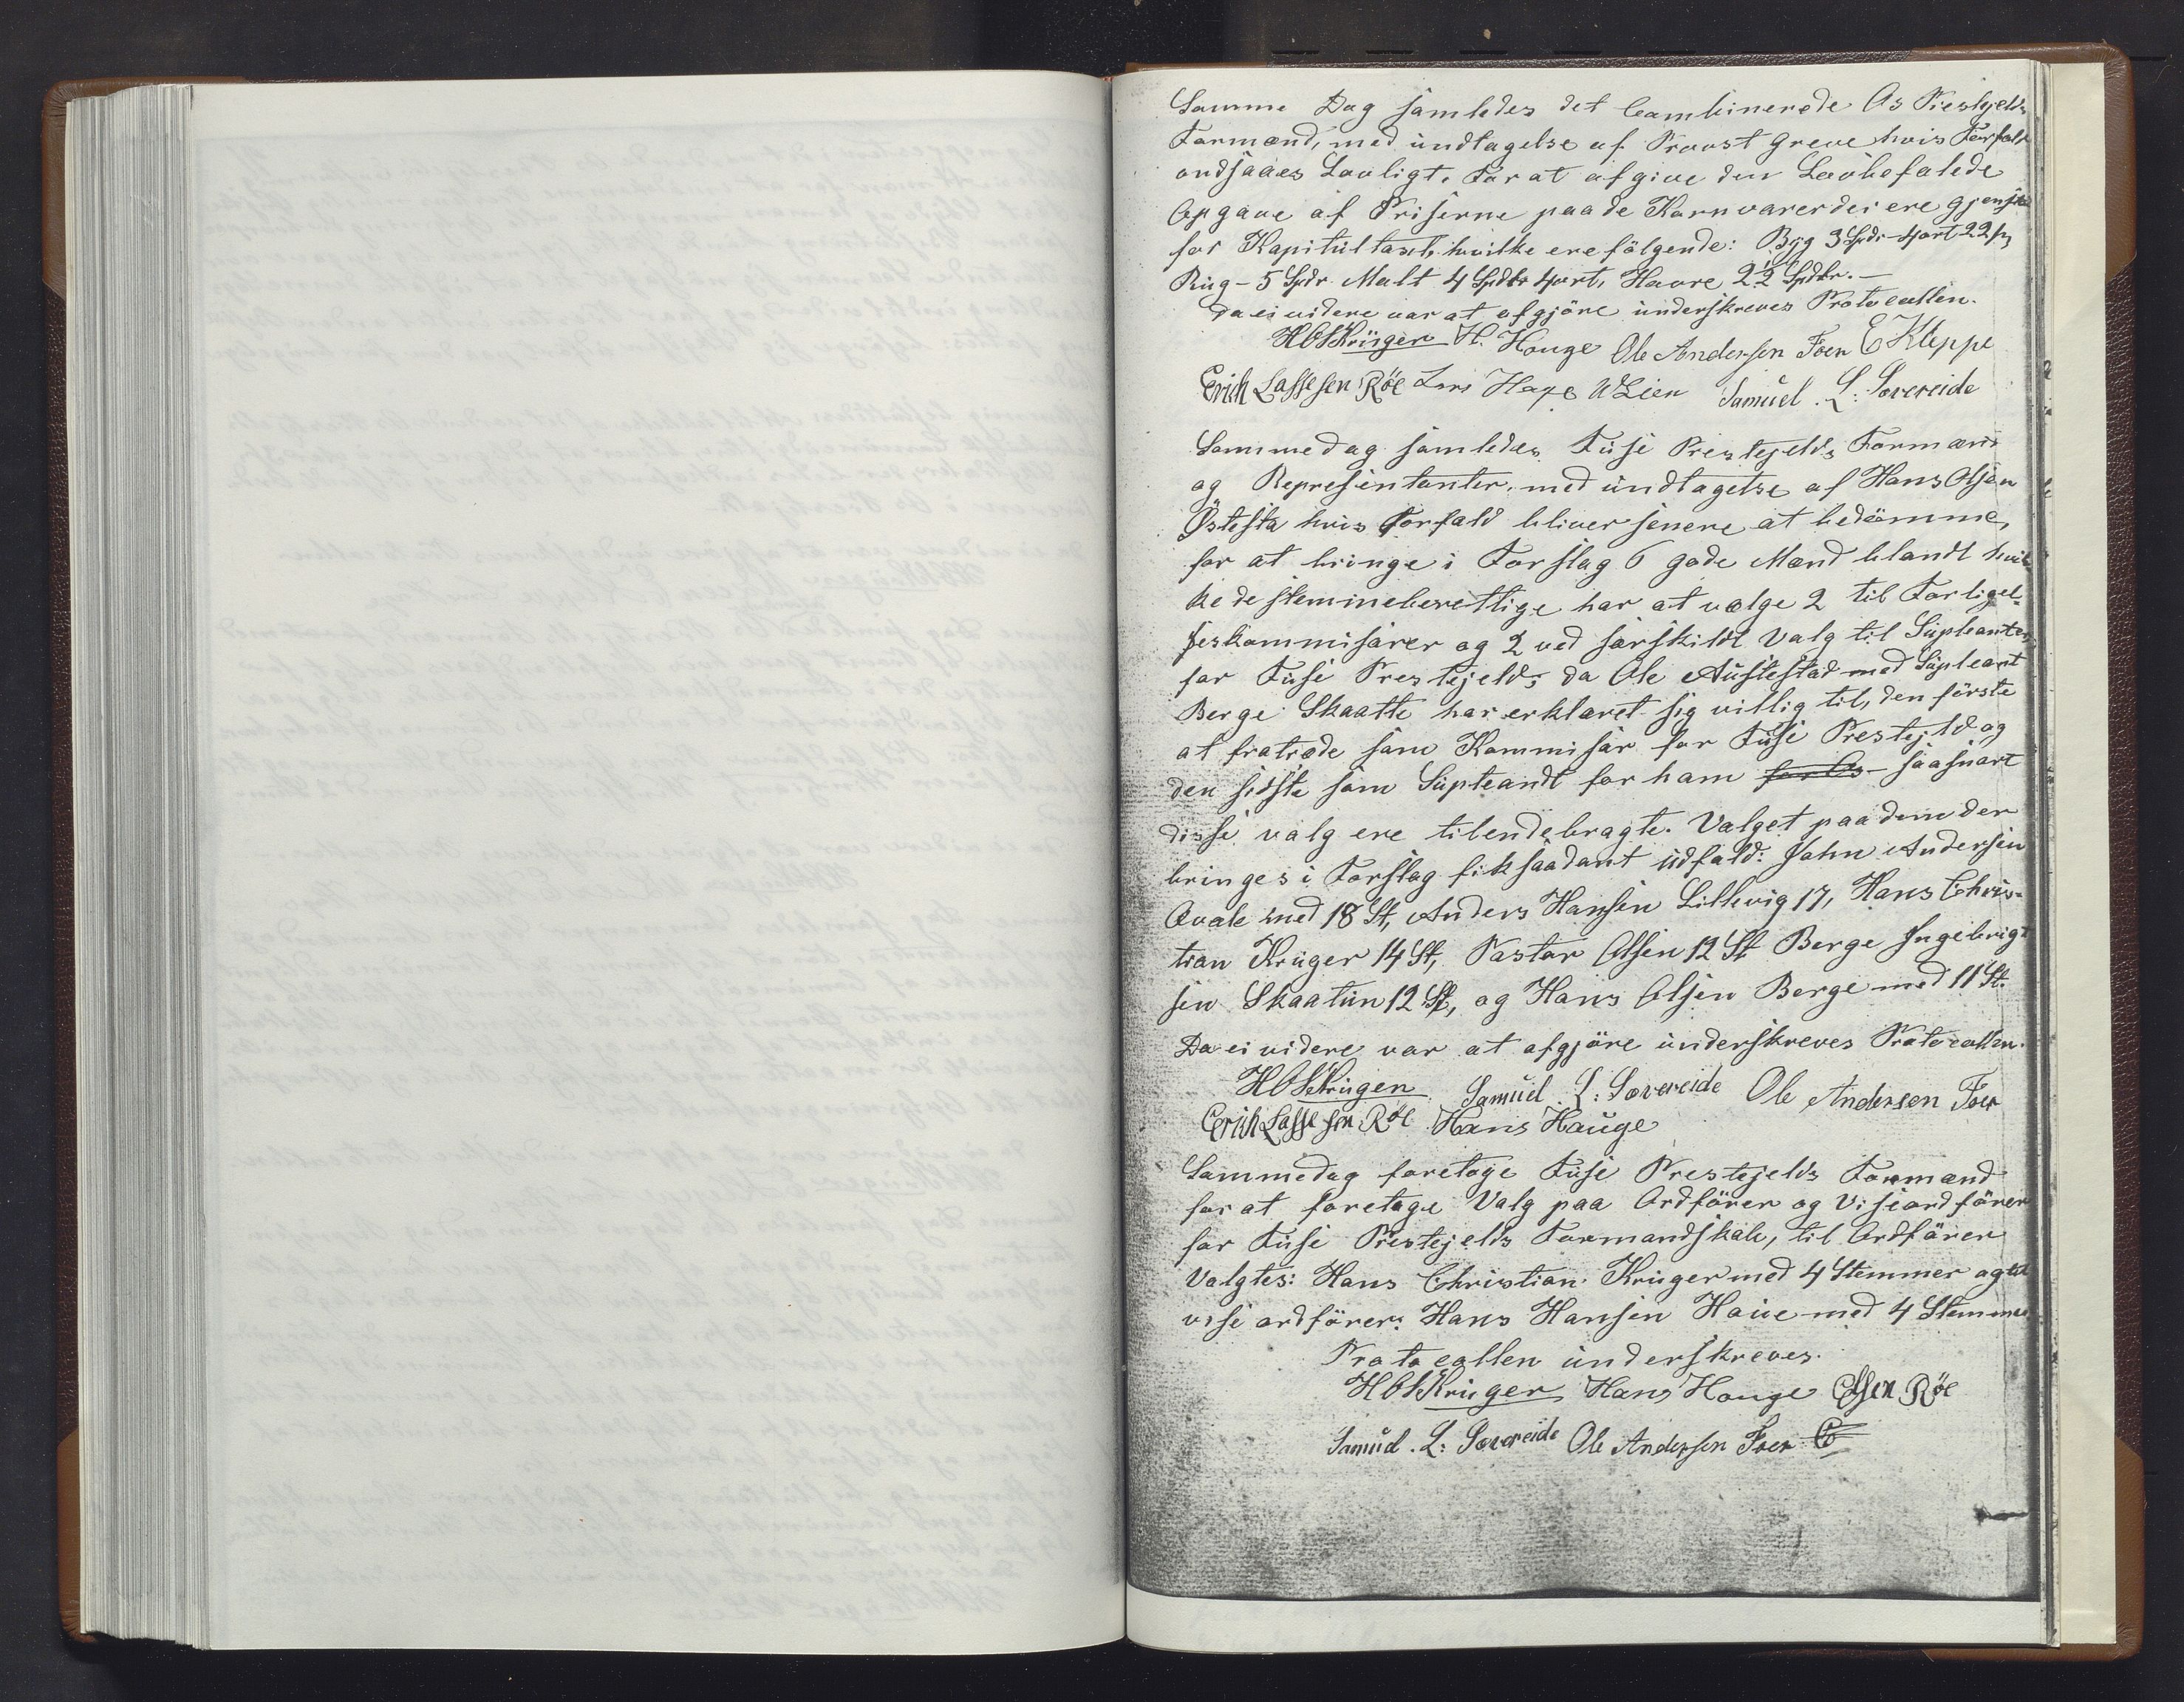 Samme Dag samledes det Combinerede Os Prestejelds
Formænd, med undtagelse af Provst Greve hvis Forfald
andsaaes Lovligt. For at afgive den Lovbefalede
Opgave af Priserne paa de Kornvarer der ere gjenst
for Kapitultaxt. hvilke ere fölgende: Byg 3 Spdr 4 ort 22 s
Rug - 5 Spdr Malt 4 Spdlr 4 ort, Havre 2½ Spdlr. -
da ei videre var at afgjöre underskreves Protocollen.
HCSKrüger H. Houge Ole Andersen Foer E Kleppe
Erich Lassesen Röe Lars Hage Lien Samuel. L: Sævereide
Sammedag samledes Fuse Prestejelds Formænd
og Representanter, med undtagelse af Hans Olsen
Östesta hvis Forfald bliver senere at bedömme,
for at bringe i Forslag 6 gode Mænd blandt hvil
ke de stemmeberettlige har at vælge 2 til Forligel-
seskommisærer og 2 ved særskildt Valg til Supleanter
for Fuse Prestejeld; da Ole Austestad med Supleant
Berge Skaatte har erklæret sig villig til, den förste
at fratræde som Kommisær for Fuse Prestejeld og
den sidste som Supleandt for ham for Os saasnart
disse valg ere tilendebragte. Valget paa dem der
bringes i Forslag fik saadant udfald: John Andersen
Qvale med 18 St, Anders Hansen Lillevig 17, Hans Chris-
tian Krüger 14 St, Pastor Olsen 12 St Berge Ingebrigt
sen Skaatun 12 St, og Hans Olsen Berge med 11 St.
Da ei videre var at afgjöre underskreves Protocollen.
HCSKrügen Samuel. L: Sævereide Ole Andersen Foer
Erich Lassesen Röe Hans Hauge
Sammedag foretoge Fuse Prestejelds Formænd
for at foretage Valg paa Ordförer og Viseordförer
for Fuse Prestejelds Formandskab, til Ordförer
Valgtes: Hans Christian Krüger med 4 Stemmer og til
vise ordförer: Hans Hansen Houe med 4 Stemmer
Protocollen underskreves.
HCSKrüger Hans Houge Röe
Samuel. L: Sævereide Ole Andersen Foer